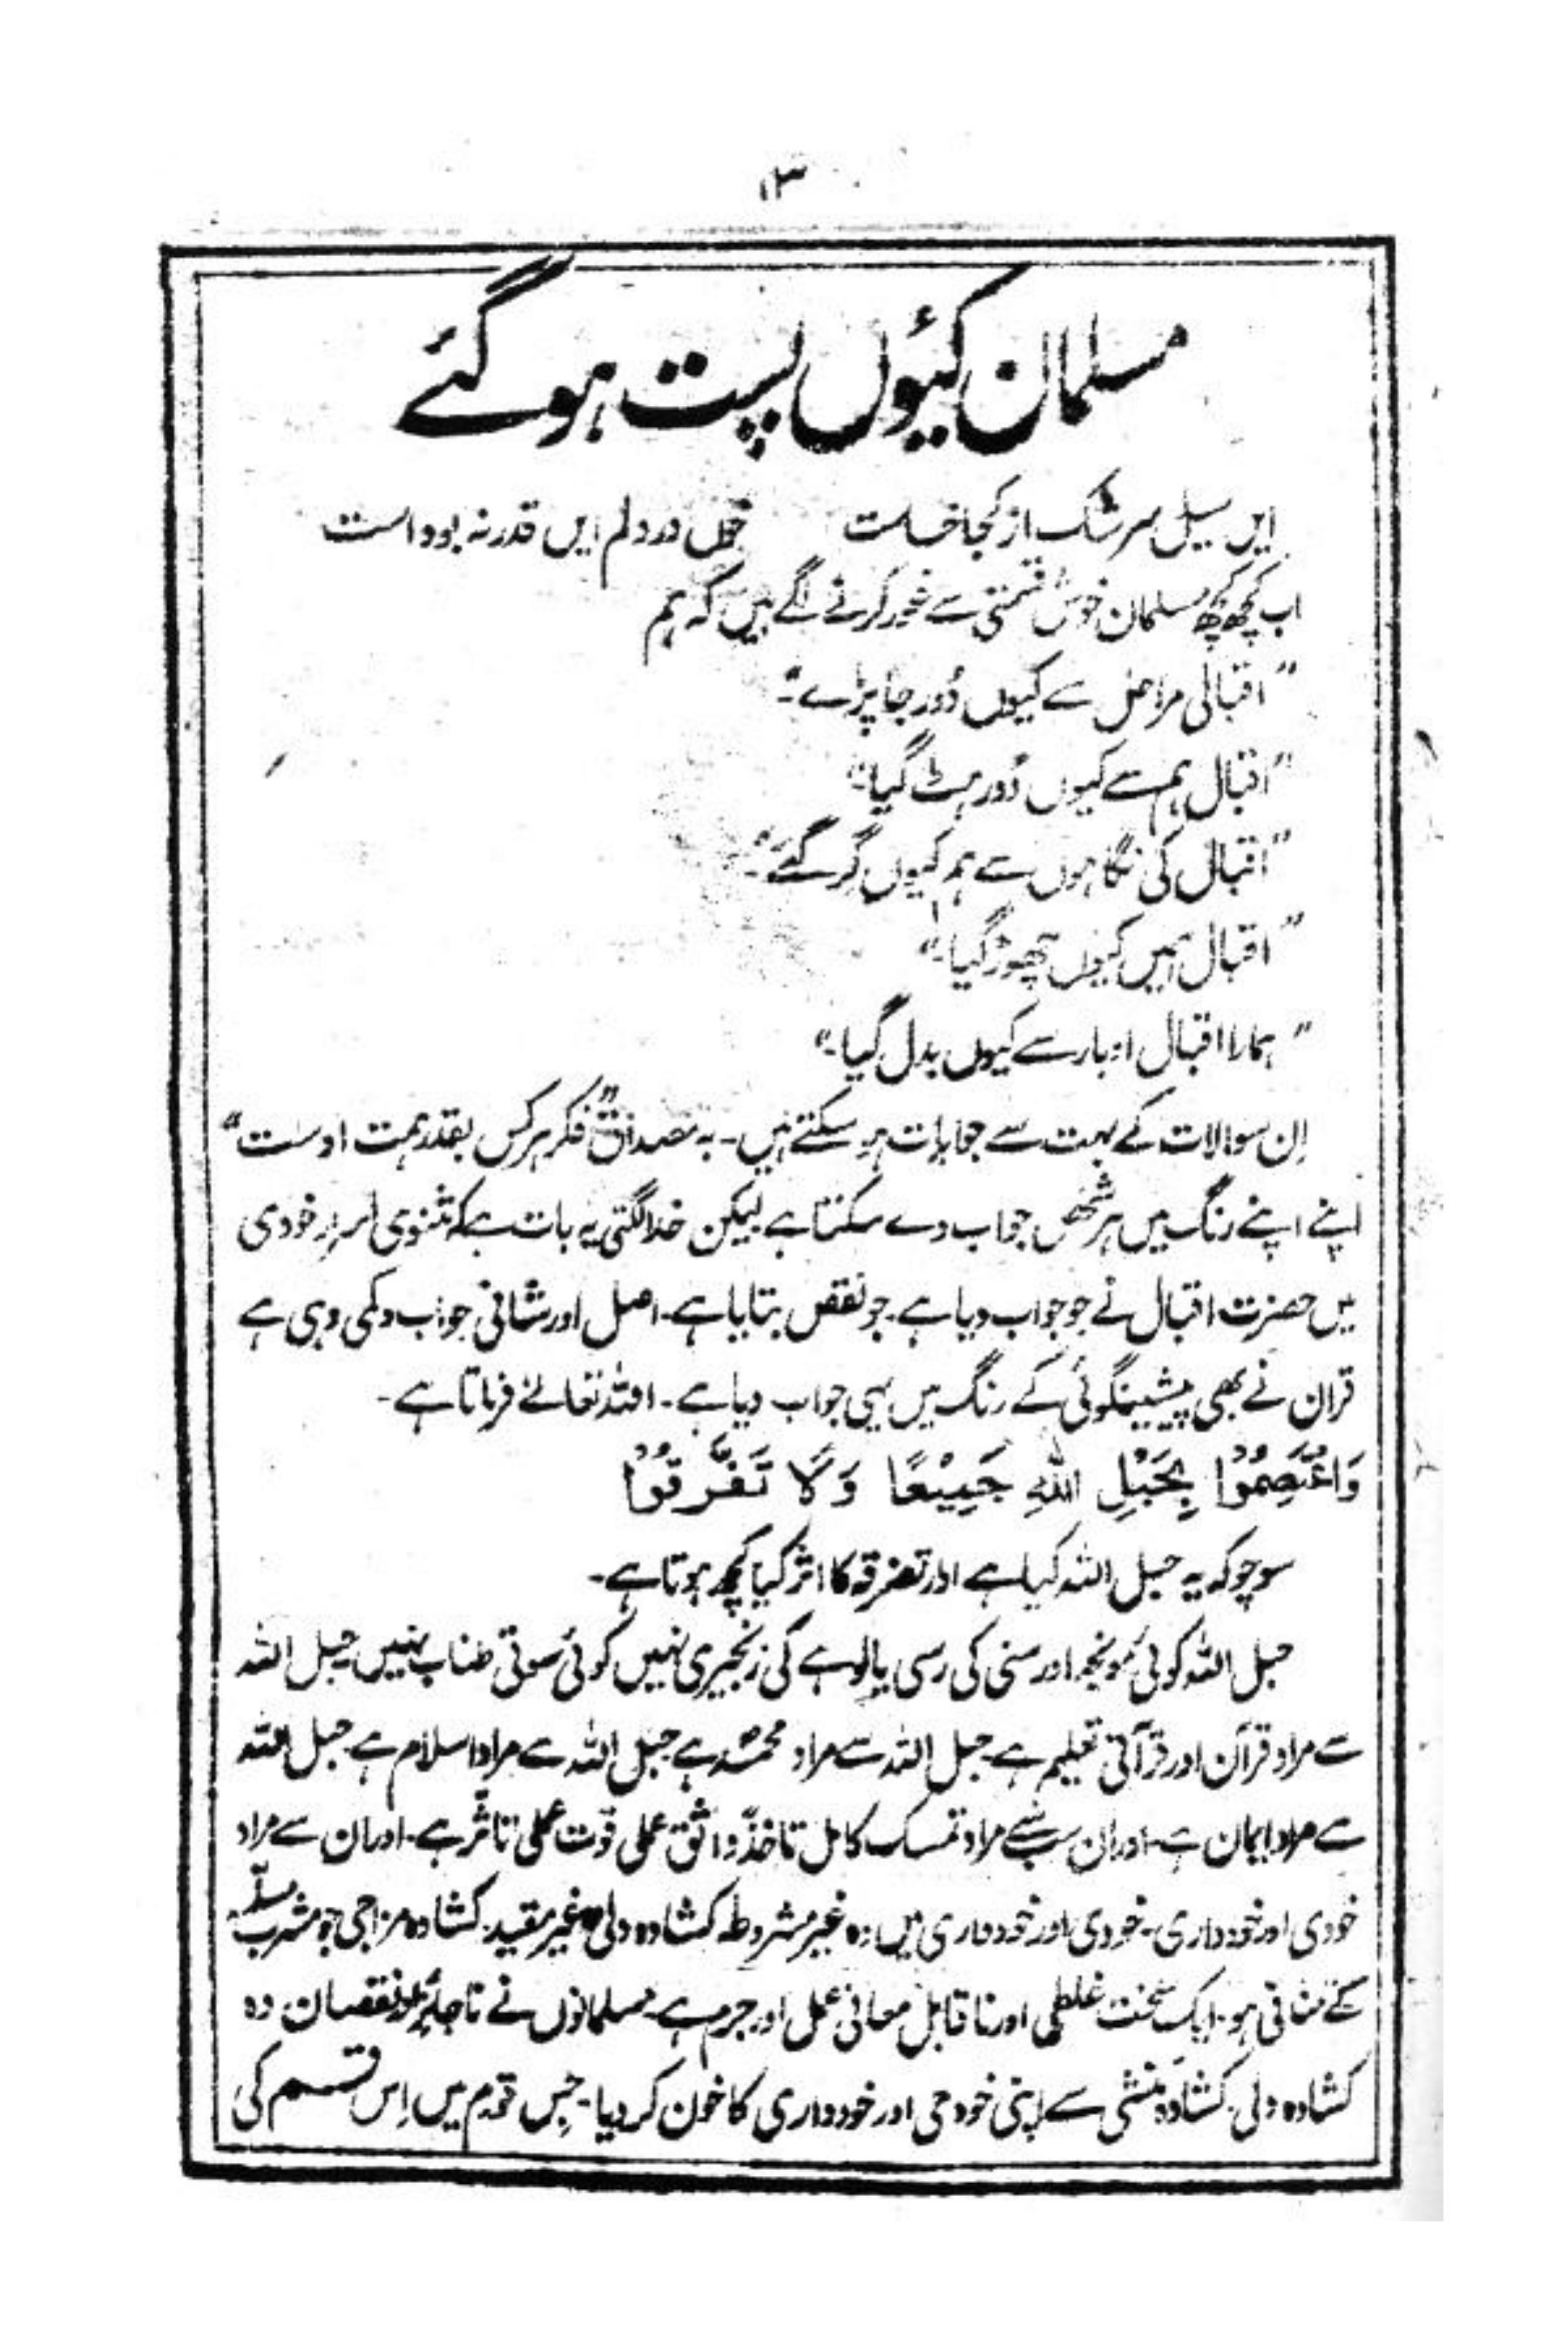 ۱۳
مسلمان کیوں پست ہو گئے
ایں سیل سرشک از کجا خاست خوں در دلم ایں قدر نہ بود است
اب کچھ کچھ مسلمان خوش قسمتی سے غور کرنے لگے ہیں کہ ہم
"اقبالی مراحل سے کیوں دُور جا پڑے۔"
"اقبال ہم سے کیوں دُور ہٹ گیا۔"
"اقبال کی نگاہوں سے ہم کیوں گر گئے۔"
"اقبال ہمیں کیوں چھوڑ گیا۔"
"ہمارا اقبال ادبار سے کیوں بدل گیا۔"
اِن سوالات کے بہت سے جوابات ہو سکتے ہیں۔ بہ مصداق "فکر ہر کس بقدر ہمت اوست"
اپنے اپنے رنگ میں ہر شخص جواب دے سکتا ہے لیکن خدا لگتی یہ بات ہے کہ مثنوی اسرار خودی
میں حضرت اقبال نے جو جواب دیا ہے۔ جو نقص بتایا ہے۔ اصل اور شافی جواب وکمی وہی ہے
قران نے بھی پیشینگوئی کے رنگ میں یہی جواب دیا ہے۔ اللہ تعالےٰ فرماتا ہے۔
وَاعْتَصِمُوْا بِحَبْلِ اللّٰہِ جَمِیْعًا وَّلَا تَفَرَّقُوْا
سوچو کہ یہ حبل اللہ کیا ہے اور تفرقہ کا اثر کیا کچھ ہوتا ہے۔
حبل اللہ کوئی مونجھ اور سنی کی رسی یا لوہے کی زنجیری نہیں کوئی سوتی طناب نہیں۔ حبل اللہ
سے مراد قرآن اور قرآنی تعلیم ہے۔ حبل اللہ سے مراد محمدؐ ہے حبل اللہ سے مراد اسلام ہے۔ حبل اللہ
سے مراد ایمان ہے۔ اور ان سب سے مراد تمسک کامل تاخذ واثق عملی قوت عملی تاثر ہے۔ اور ان سے مراد
خودی اور خودداری۔ خودی اور خودداری میں وہ غیر مشروط کشادہ دلی غیر مقید۔ کشادہ مزاجی جو مشرب
کے منافی ہو۔ ایک سخت غلطی اور ناقابل معافی عمل اور جرم ہے۔ مسلمانوں نے ناجائز اور نقصان دہ
کشادہ دلی کشادہ منشی سے اپنی خودی اور خودداری کا خون کر دیا۔ جس قوم میں اِس قسم کی